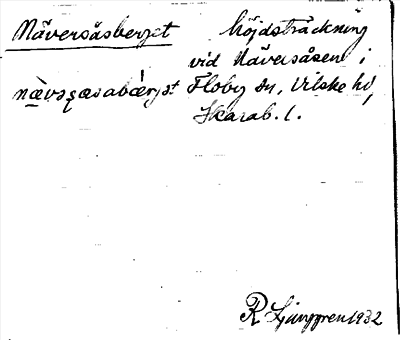 Näversåsberget höjdsträckning
vid Näversåsen i
Floby sn, Vilske hd,
Skarab. l.
R Ljunggren 1932